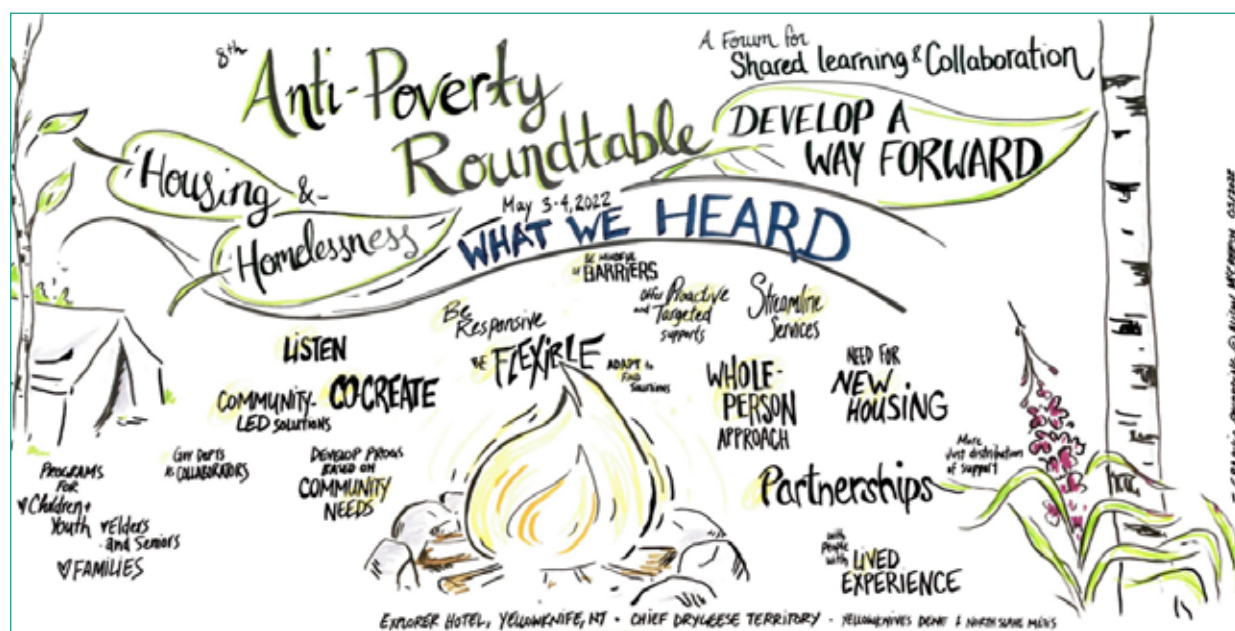 8th
Anti-Poverty
Roundtable
A Forum for
Shared Learning & Collaboration
DEVELOP A
WAY FORWARD
Housing &
Homelessness
May 3-4, 2022
WHAT WE HEARD
BE MINDFUL
of BARRIERS
Be
Responsive
Offer Proactive
and Targeted
supports
Streamline
Services
LISTEN
BE FLEXIBLE
ADAPT to
FIND
SOLUTIONS
COMMUNITY-
LED SOLUTIONS
CO-CREATE
WHOLE-
PERSON
APPROACH
NEED FOR
NEW
HOUSING
PROGRAMS
FOR
Children +
Youth
Elders
and Seniors
FAMILIES
GOV DEPTS
as COLLABORATORS
DEVELOP PROGS
BASED ON
COMMUNITY
NEEDS
Partnerships
More
Just distribution
of support
with
people
with LIVED
EXPERIENCE
EXPLORER HOTEL, YELLOWKNIFE, NT • CHIEF DRYGEESE TERRITORY - YELLOWKNIVES DENE & NORTH SLAVE MÉTIS